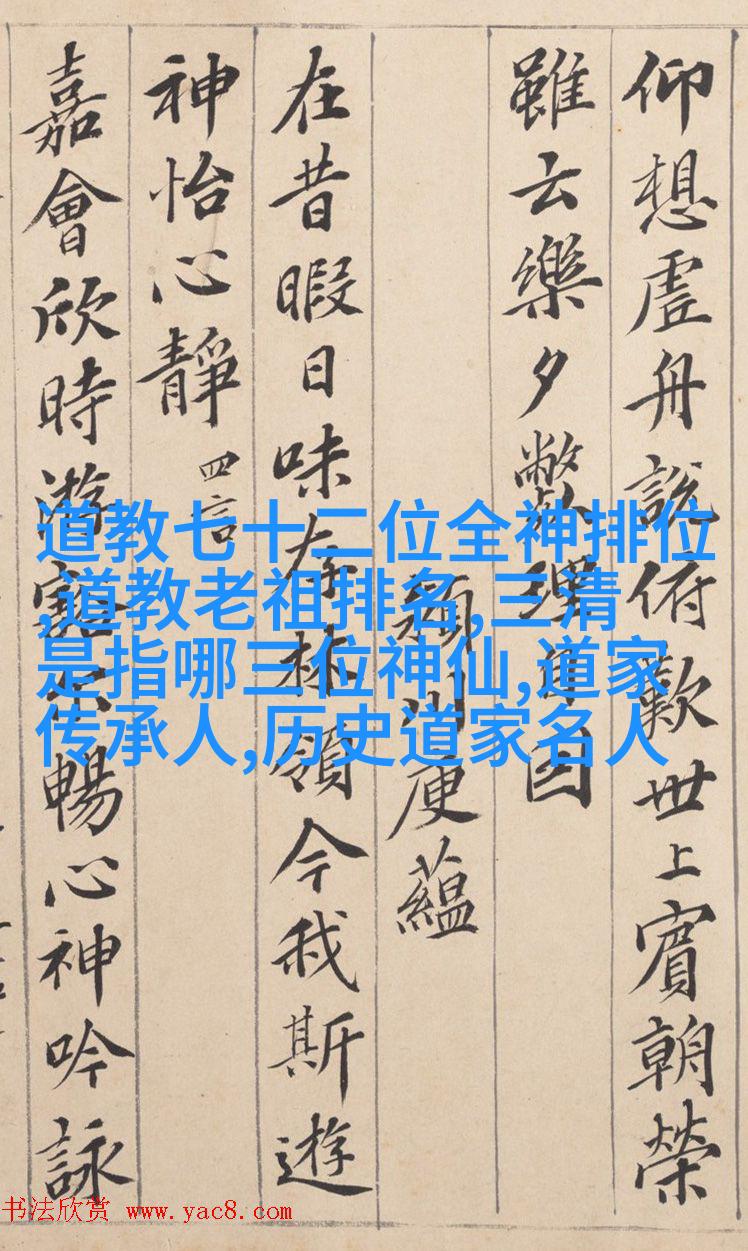 仰想虛舟說俯歎世上賓朝榮
雖云樂夕斃理自因
潁川庾蘊
在昔暇日味存林嶺今我斯遊
神怡心靜 四言
嘉會欣時游豁尓暢心神吟詠
道教七十二位全神排位
,道教老祖排名,三清
是指哪三位神仙,道家
传承人,历史道家名人
书法欣赏 www.yac8.com